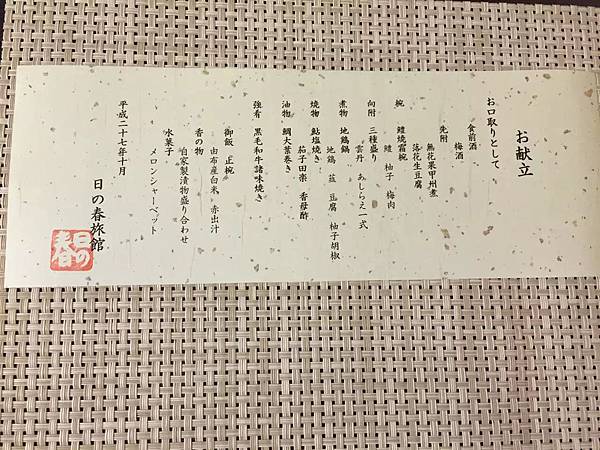 お献立
お口取りとして
食前酒
梅酒
先附
無花果甲州煮
落花生豆腐
椀 鱧焼霜椀
鱧 柚子 梅肉
向附 三種盛り
雲丹 あしらえ一式
煮物 地鶏鍋
地鶏 韮 豆腐 柚子胡椒
焼物 鮎塩焼き
茄子田楽 香母酢
油物 鯛大葉巻き
強肴 黒毛和牛諸味焼き
御飯 止椀
由布産白米 赤出汁
香の物
自家製漬物盛り合わせ
水菓子
メロンシャーベット
平成二十七年十月
日の春旅館
日の春